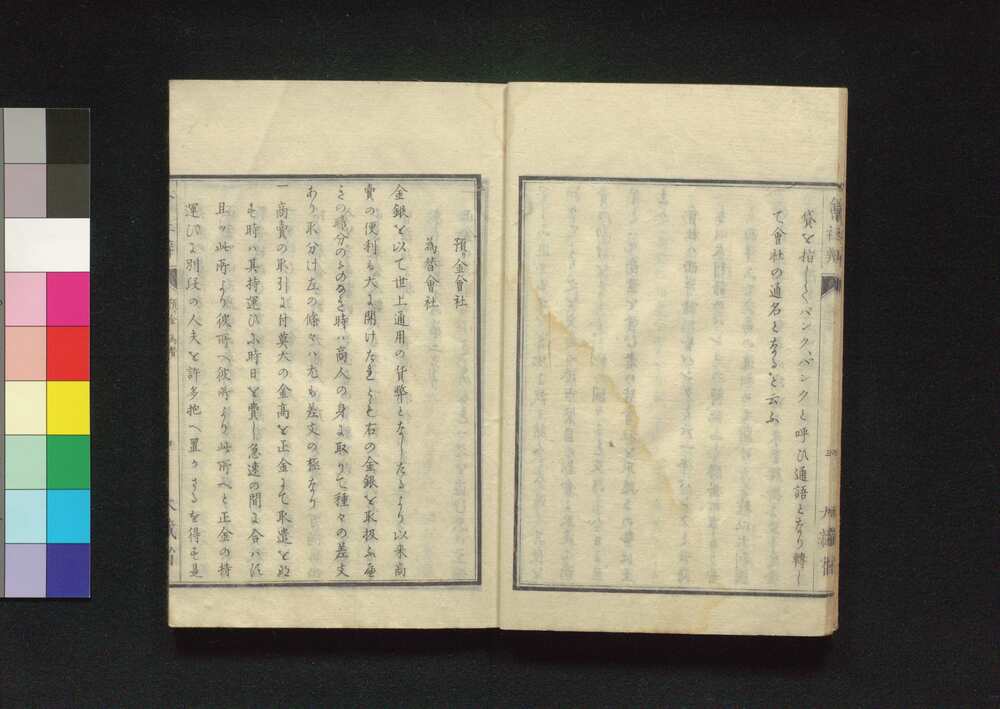 貸を指してバンク、バンクと呼ひ通語となり轉し
て會社の通名となると云ふ
會社辨
大藏省
預り金會社
為替會社
金銀を以て世上通用の貨幣となしたるより以来商
賣の便利も大に開けたれとも右の金銀を取扱ふ
その職分のものなき時ハ商人の身に取りて種々の差支
あり取分け左の條々ハ尤も差支の極なり
一商賣の取引に付莫大の金高を正金にて取遣を
る時ハ其持運ひに時日を費し急速の間に合ハ
且つ此所より彼所へ彼所より此所へと正金の持
運ひに別段の人夫を許多抱へ置かさるを得す是
預金 為替
大藏省